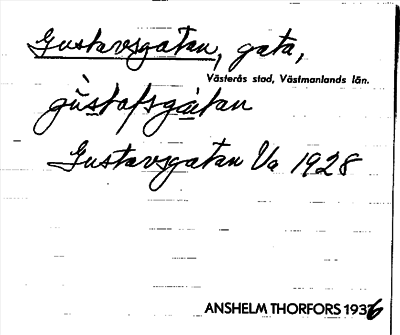 Gustavsgatan, gata,
Västerås stad, Västmanlands län.
gùstafsgàtan
Gustavsgatan Va 1928
ANSHELM THORFORS 1936